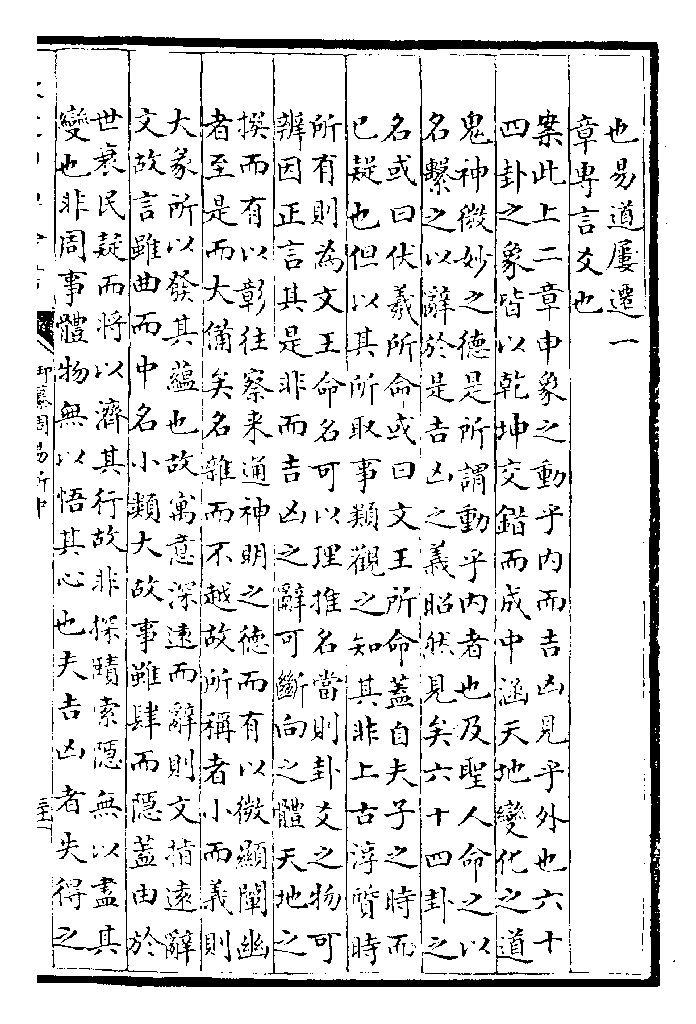 也易道屢遷一
章專言爻也
案此上二章申象之動乎内而吉凶見乎外也六十
四卦之象皆以乾坤交錯而成中涵天地變化之道
鬼神微妙之德是所謂動乎内者也及聖人命之以
名繫之以辭於是吉凶之義昭然見矣六十四卦之
名或曰伏羲所命或曰文王所命蓋自夫子之時而
已疑也但以其所取事類觀之知其非上古淳質時
所有則為文王命名可以理推名當則卦爻之物可
辨因正言其是非而吉凶之辭可斷向之體天地之
撰而有以彰往察来通神明之徳而有以微顯闡幽
者至是而大備矣名雜而不越故所稱者小而義則
大彖所以發其蘊也故寓意深遠而辭則文㫖遠辭
文故言雖曲而中名小類大故事雖肆而隱蓋由於
世衰民疑而将以濟其行故非探賾索隠無以盡其
變也非周事體物無以悟其心也夫吉凶者失得之
御纂周易折中